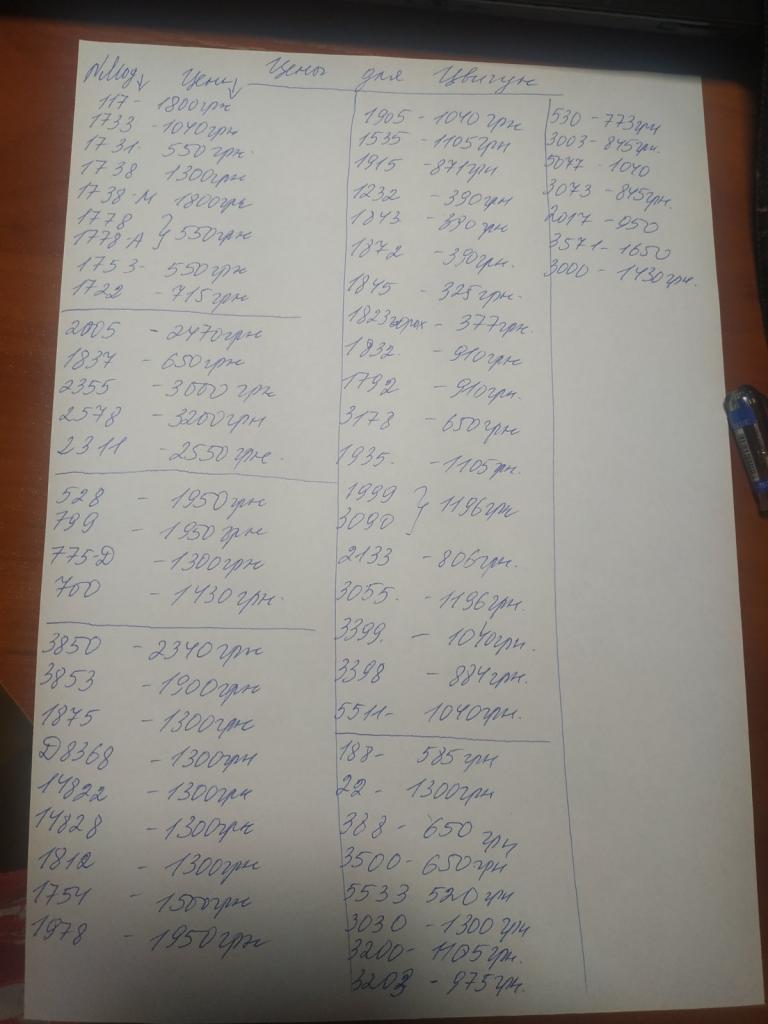 №Мод Цена Цены для Цвигун
117- 1800грн
1733 -1040грн
1731. 550грн.
1738 1300грн
1738-М 1800грн
1778
1778-А } 550грн
1753- 550грн
1722 -715грн
2005 -2470грн
1837 -650грн
2355 -3000грн
2578 -3200грн
2311 -2550грн.
528 -1950грн
799 -1950грн
775-D -1300грн
700 -1430грн.
3850 -2340грн
3853 -1900грн
1875 -1300грн
D8368 -1300грн
14822 -1300грн
14828 -1300грн
1812 -1300грн
1754 -1500грн
1978 -1950грн
1905 -1040грн
1535 -1105грн
1915 -871грн
1232 -390грн
1843 -390грн
1872 -390грн.
1845 -325грн.
1823горох -377грн.
1832. -910грн
1792 -910грн.
3178 -650грн
1935. -1105грн.
1999
3090 } 1196грн
2133 -806грн.
3055. -1196грн.
3399. -1040грн.
3398 -884грн.
5511- 1040грн.
188- 585грн
22- 1300грн
388- 650грн
3500- 650грн
5533 520грн
3030 -1300грн
3200- 1105грн.
3203 -975грн.
530 -773грн
3003 -845грн.
5077 -1040
3073 -845грн.
2017 -950
3571- 1650
3000 -1430грн.